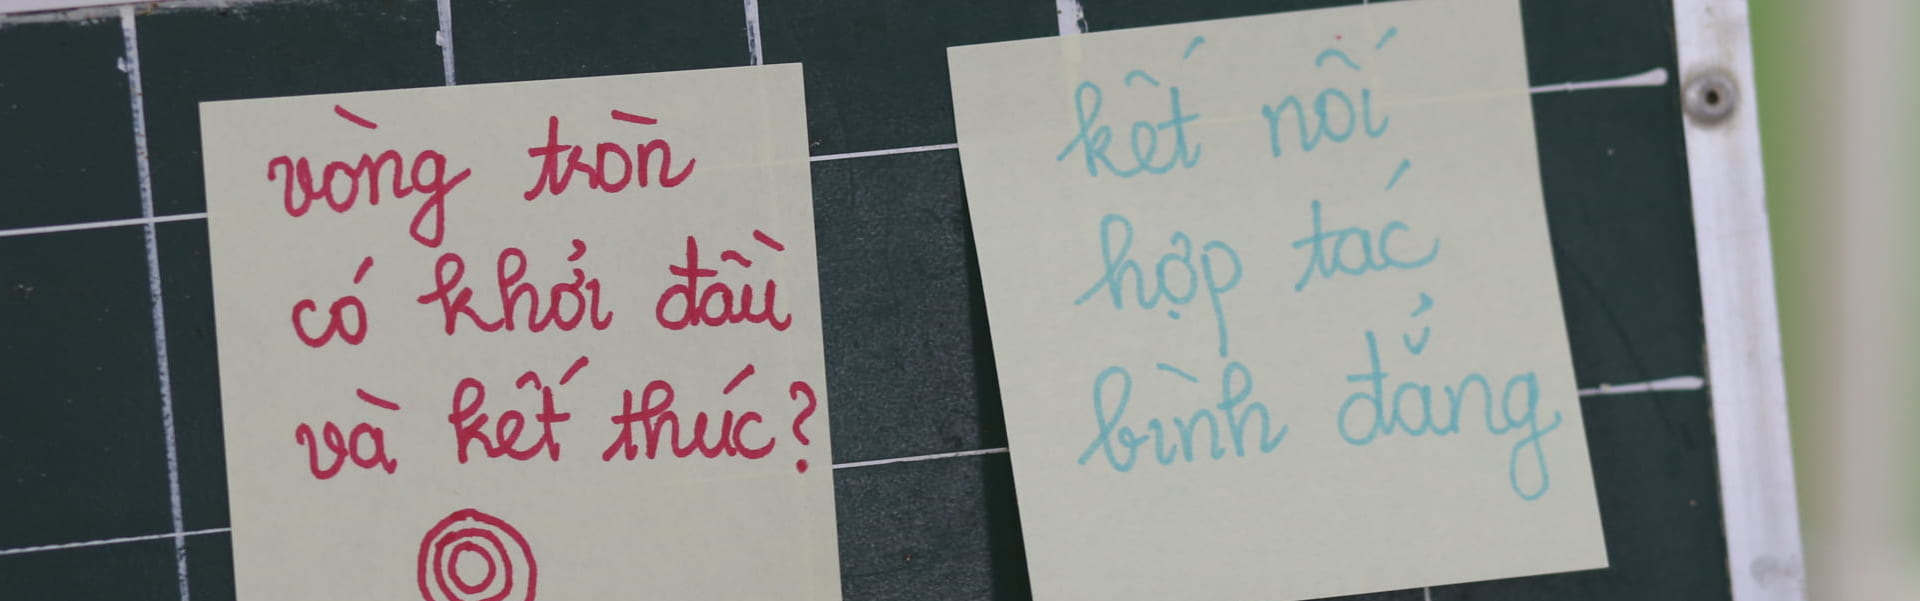 vòng tròn
có khởi đầu
và kết thúc?
kết nối
hợp tác
bình đẳng